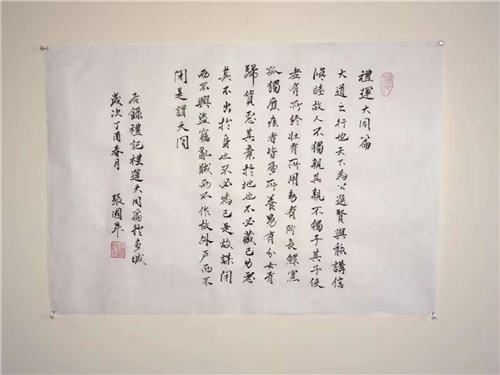 禮運大同篇
大道之行也天下為公選賢與能講信
修睦故人不獨親其親不獨子其子使
老有所終壯有所用幼有所長鰥寡
孤獨廢疾者皆有所養男有分女有
歸貨惡其棄於地也不必藏己力惡
其不出於身也不必為己是故謀閉
而不興盜竊亂賊而不作故外戶而不
閉是謂大同
右錄禮記禮運大同篇於多城
歲次丁酉春月 張國昇